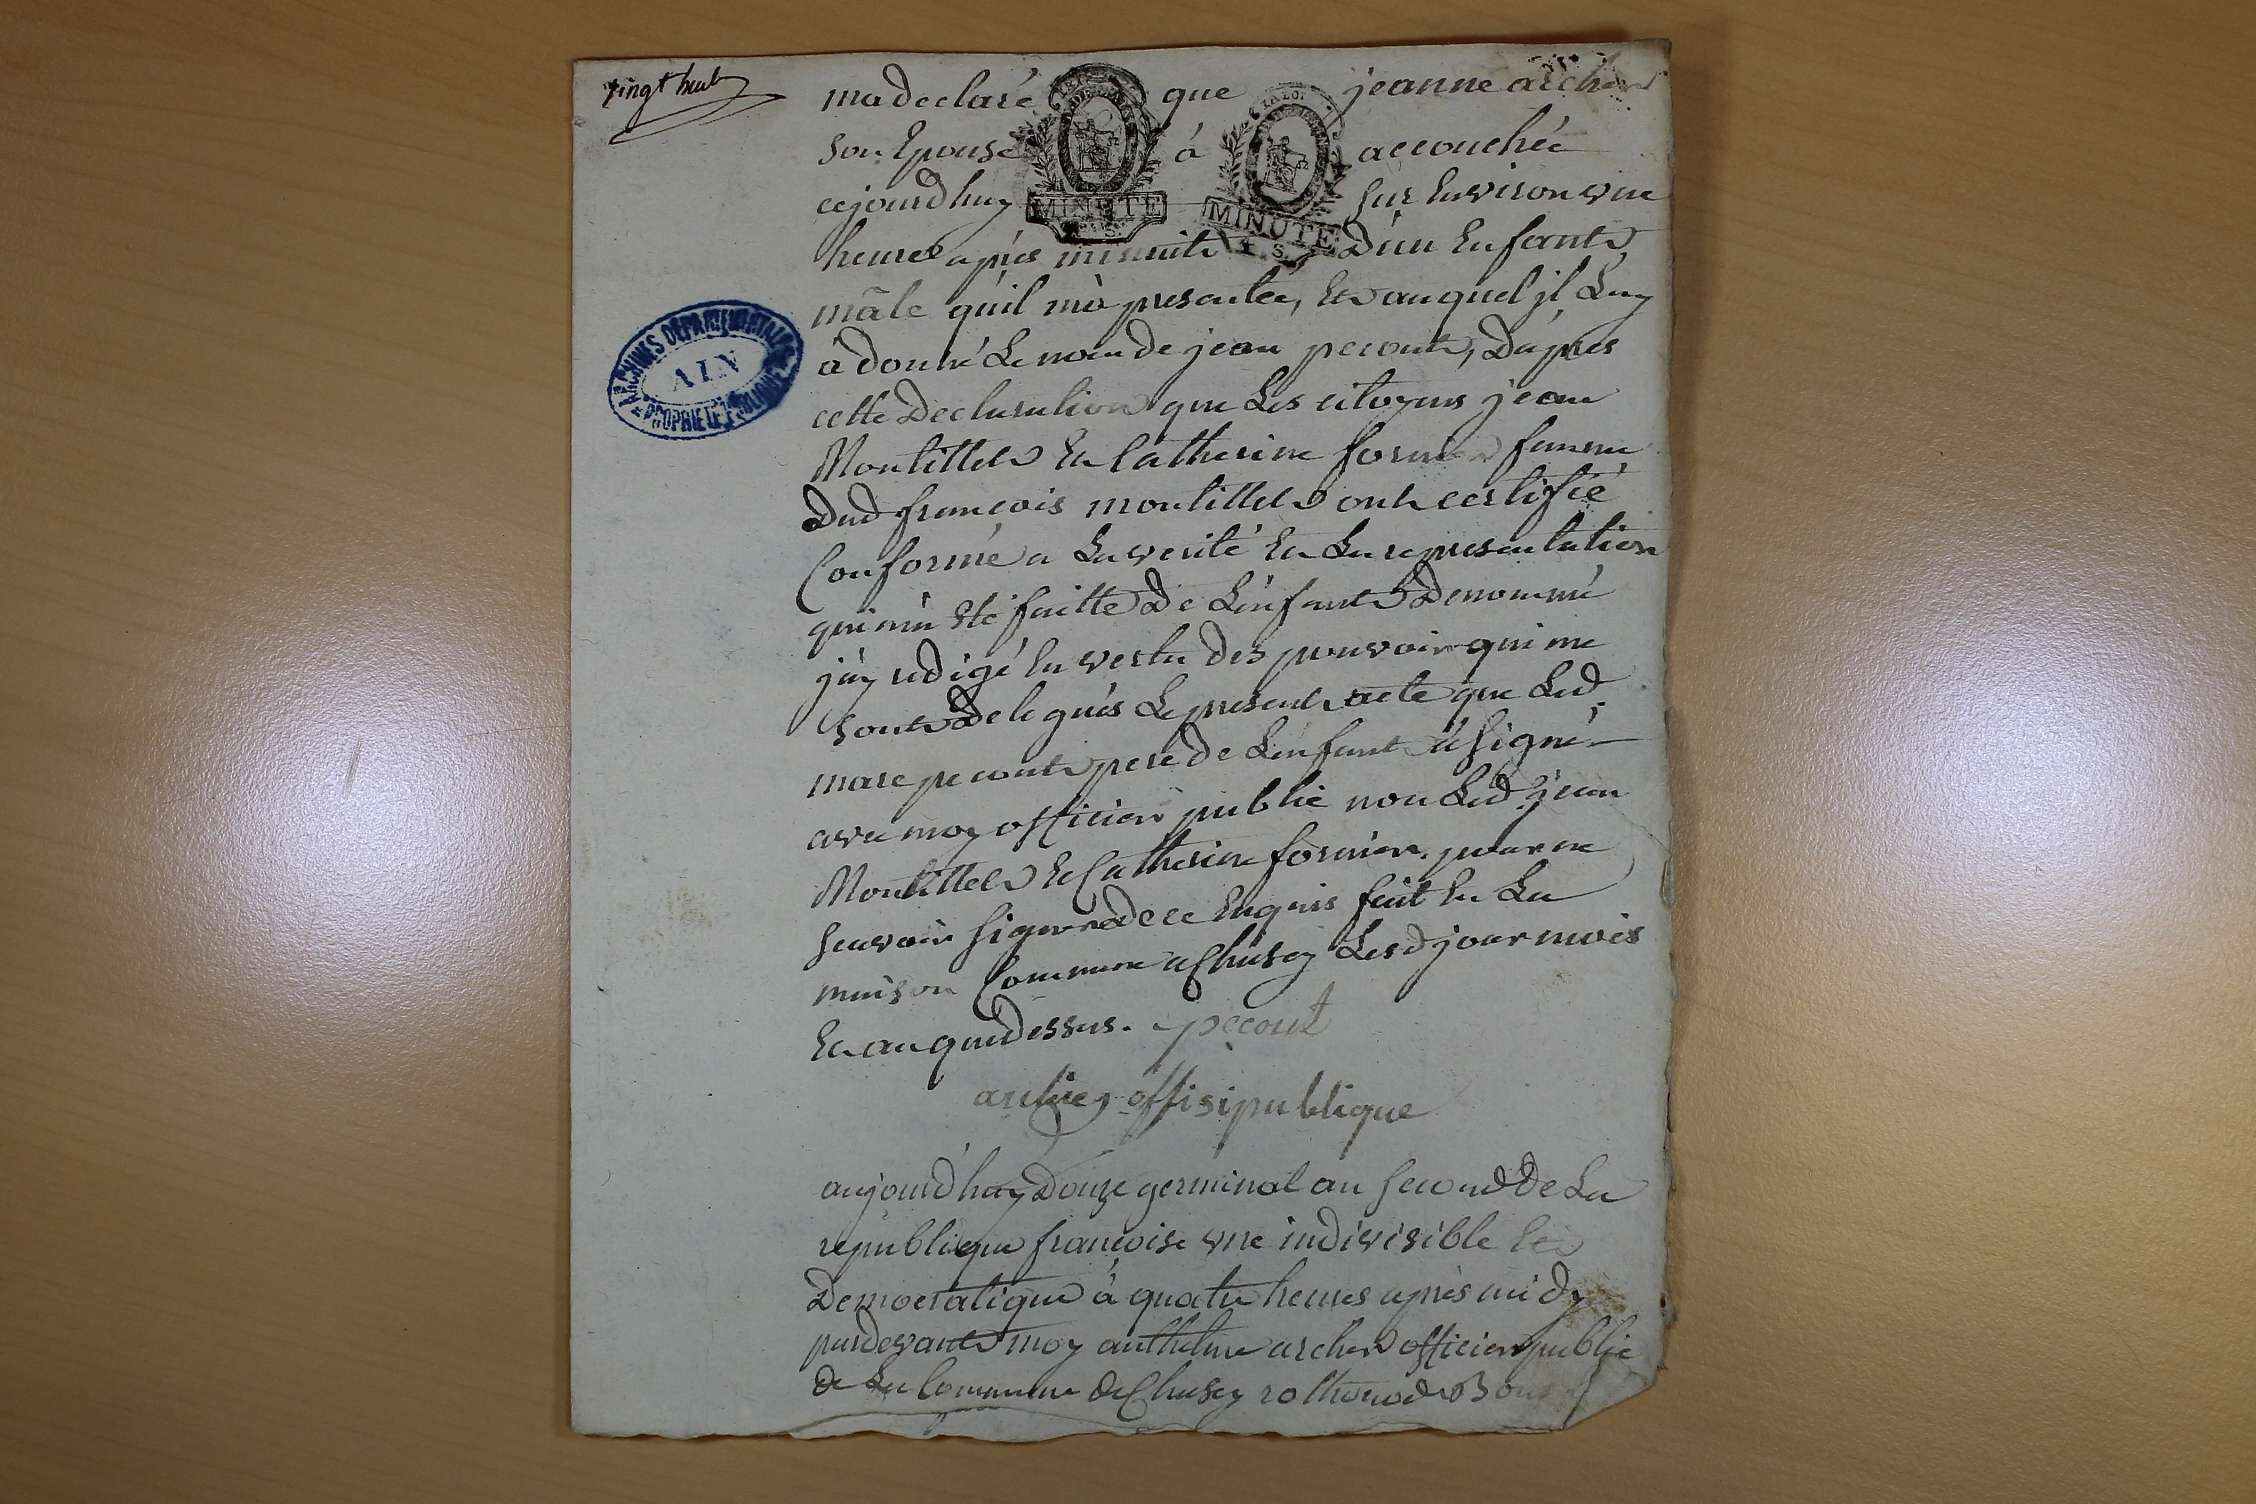 vingt huit
ma declaré que jeanne archer
son Epouse à accouchée
cejourdhuy sur Environ une
heures après minuit D'un Enfant
mâle qu'il m'à presentée, Et auquel jl Luy
à donné Le nom de jean pecout, D'après
cette Declaration que Les citoyens jean
Montillet Et Catherine formier femme
Dud françois montillet ont certifié
Conforme a La verité Et La representation
qui m'a Eté faitte De L'enfant Denommé
j'ay redigé En vertu des pouvoir qui me
sont Delegués Le present acte que Led.
marc pecout pere de L'enfant à signé
avec moy officier public non Led jean
Montillet Et Catherine formier pour ne
scavoir signer de ce Enquis fait En La
maison Commune a Chasey Lesd jour mois
Et an que dessus. pecout
archer offisi publique
aujourd'huy Douze germinal an second de La
republique françoise une indivisible Et
Democratique à quatre heures après midy
pardevant moy anthelme archer officier public
de La Commune de Chasey rothonod
ARCHIVES DEPARTEMENTALES
AIN
PROPRIETE PUBLIQUE
LA LOI
MINUTE
4. S.
LA LOI
MINUTE
4. S.